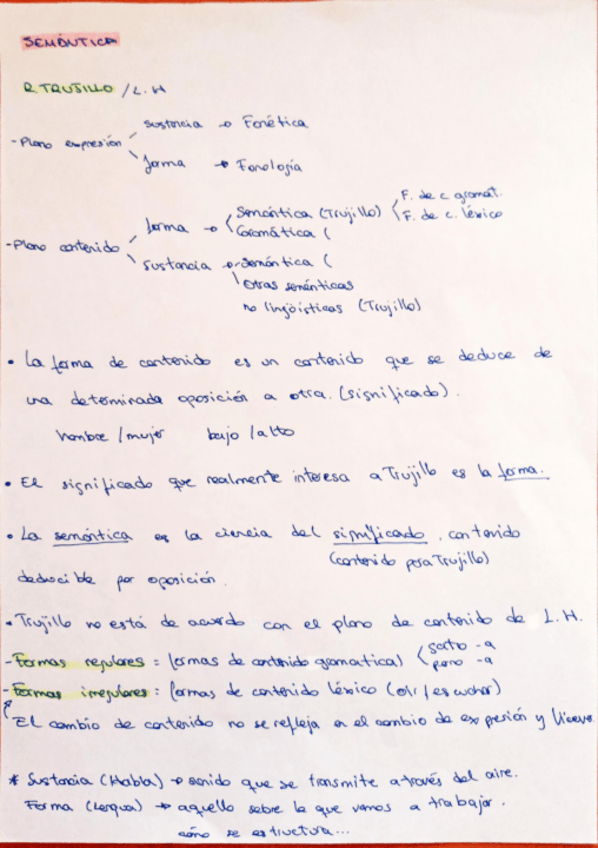 SEMÁNTICA
R. TRUJILLO / L.H
sustancia → Fonética
- Plano expresión
forma → Fonología
F. de c gramát.
Semántica (Trujillo)
F. de c. léxico
forma →
Gramática (
- Plano contenido
sustancia → Semántica (
otras semánticas
no lingüísticas (Trujillo)
• La forma de contenido es un contenido que se deduce de
una determinada oposición a otra. (significado).
hombre / mujer bajo / alto
• El significado que realmente interesa a Trujillo es la forma.
• La semántica es la ciencia del significado, contenido
(contenido para Trujillo)
deducible por oposición.
• Trujillo no está de acuerdo con el plano de contenido de L.H.
- Formas regulares: formas de contenido gramatical
-a
-a
- Formas irregulares: formas de contenido léxico (oír / escuchar)
El cambio de contenido no se refleja en el cambio de expresión y
* Sustancia (Habla) → sonido que se transmite a través del aire.
Forma (Lengua) → aquello sobre lo que vamos a trabajar.
cómo se estructura...